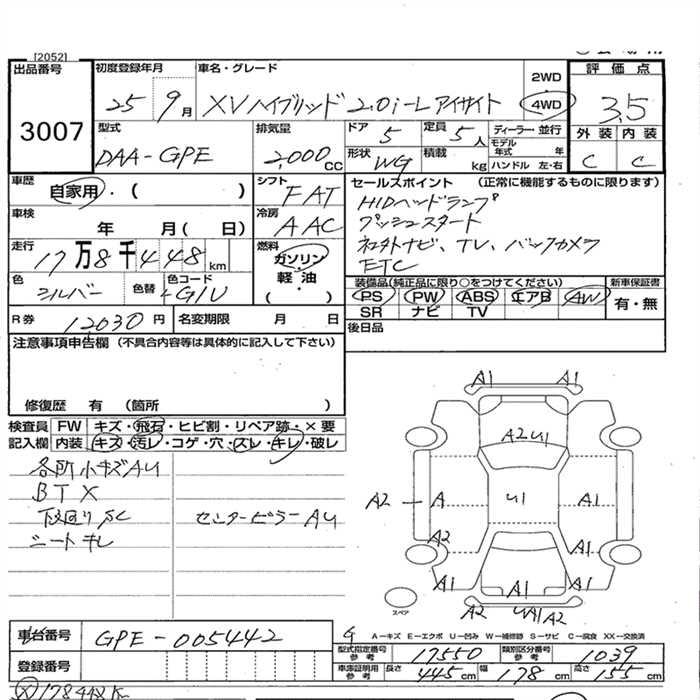 [2052]
出品番号
3007
初度登録年月
25 9月
車名・グレード
XVハイブリッド 2.0i-L アイサイト
2WD
4WD
評価点
3.5
外装 内装
C C
型式
DAA-GPE
排気量
2,000 CC
ドア 5
定員 5人
形状 WG
積載 kg
ディーラー・並行
モデル年式 年
ハンドル 左・右
車歴
自家用・( )
シフト FAT
車検
年 月( 日)
冷房 AAC
走行
17万8千448km
燃料
ガソリン・
軽・油
・( )
色
シルバー
色替
色コード
G1U
R券
12030円
名変期限 月 日
セールスポイント (正常に機能するものに限ります)
HIDヘッドランプ
プッシュスタート
社外ナビ、TV、バックカメラ
ETC
装備品(純正品に限り○をつけてください)
新車保証書
PS PW ABS エアB AW
SR ナビ TV
有・無
後日品
注意事項申告欄 (不具合内容等は具体的に記入して下さい)
修復歴 有 (箇所 )
検査員記入欄
FW キズ・飛石・ヒビ割・リペア跡・×要
内装 キズ・汚レ・コゲ・穴・スレ・キレ・破レ
各所小キズAU
BTX
下廻りSC
シートキレ
センターピラーAU
A1 A1
A2U1
A2 A U1 A1
A2 A1
A1 A1 A1
A2 A2
スペア
A-キズ E-エクボ U-凹み W-補修跡 S-サビ C-腐食 XX-交換済
車台番号
GPE-005442
登録番号
型式指定番号 参考
17550
類別区分番号 参考
1039
車庫証明用 参考
長さ 445cm 幅 178cm 高さ 155cm